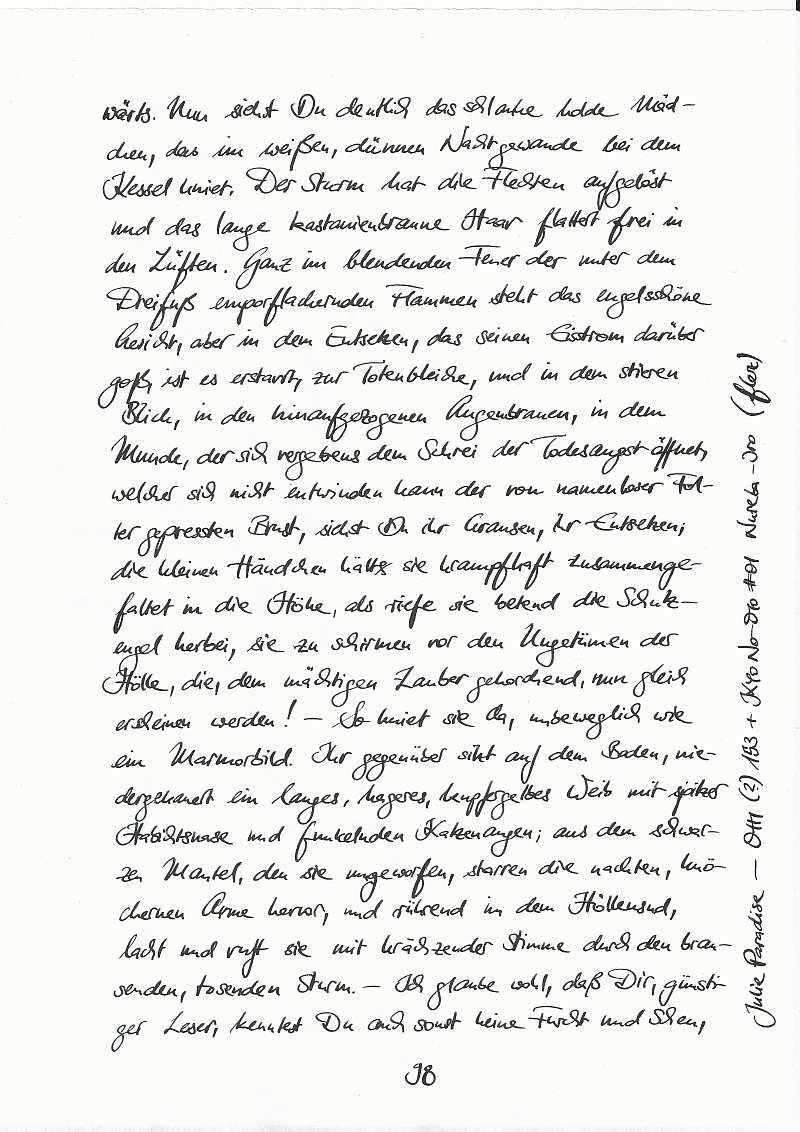 wärts. Nun siehst Du deutlich das schlanke holde Mäd-
chen, das im weißen, dünnen Nachtgewande bei dem
Kessel kniet. Der Sturm hat die Flechten aufgelöst
und das lange kastanienbraune Haar flattert frei in
den Lüften. Ganz im blendenden Feuer der unter dem
Dreifuß emporflackernden Flammen steht das engelsschöne
Gesicht, aber in dem Entsetzen, das seinen Eisstrom darüber
goß, ist es erstarrt zur Totenbleiche, und in dem stieren
Blick, in den hinaufgezogenen Augenbrauen, in dem
Munde, der sich vergebens dem Schrei der Todesangst öffnet,
welcher sich nicht entwinden kann der von namenloser Fol-
ter gepressten Brust, siehst Du ihr Grausen, ihr Entsetzen;
die kleinen Händchen hält sie krampfhaft zusammenge-
faltet in die Höhe, als riefe sie betend die Schutz-
engel herbei, sie zu schirmen vor den Ungetümen der
Hölle, die, dem mächtigen Zauber gehorchend, nun gleich
erscheinen werden! – So kniet sie da, unbeweglich wie
ein Marmorbild. Ihr gegenüber sitzt auf dem Boden, nie-
dergekauert ein langes, hageres, kupfergelbes Weib mit spitzer
Habichtsnase und funkelnden Katzenaugen; aus dem schwar-
zen Mantel, den sie umgeworfen, starren die nackten, knö-
chernen Arme hervor, und rührend in dem Höllensud,
lacht und ruft sie mit krächzender Stimme durch den brau-
senden, tosenden Sturm. – Ich glaube wohl, daß Dir, günsti-
ger Leser, kenntest Du auch sonst keine Furcht und Scheu,
98
Julie Paradise – Ott (?) 193 + Kyo No-Oto #01 Nureba-Iro (flex)